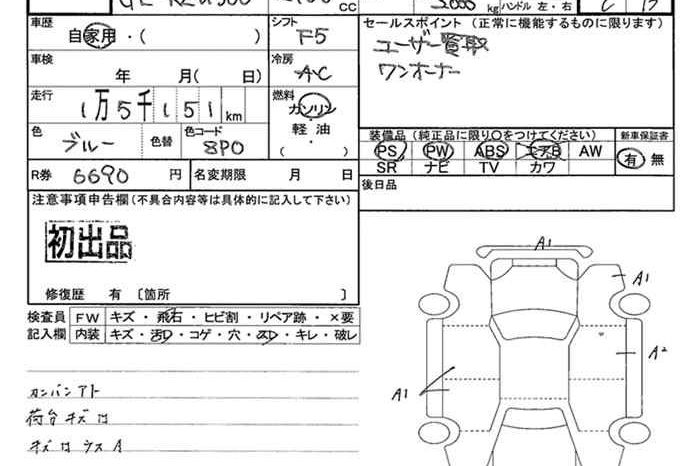 cc
kg ハンドル 左・右
車歴
自家用・( )
シフト
F5
セールスポイント (正常に機能するものに限ります)
ユーザー買取
ワンオーナー
車検
年 月( 日)
冷房
AC
走行
1万5千151km
燃料
ガソリン
・
軽油
( )
色
ブルー
色替
色コード
8P0
装備品 (純正品に限り○をつけてください)
新車保証書
PS PW ABS エアB AW
SR ナビ TV カワ
有 無
R券 6690 円
名変期限 月 日
後日品
注意事項申告欄(不具合内容等は具体的に記入して下さい)
初出品
修復歴 有 〔箇所 〕
検査員
記入欄
FW キズ・飛石・ヒビ割・リペア跡・×要
内装 キズ・汚・コゲ・穴・・キレ・破レ
カンバンアト
荷台キズ
キズ A
A1
A1
A2
A1